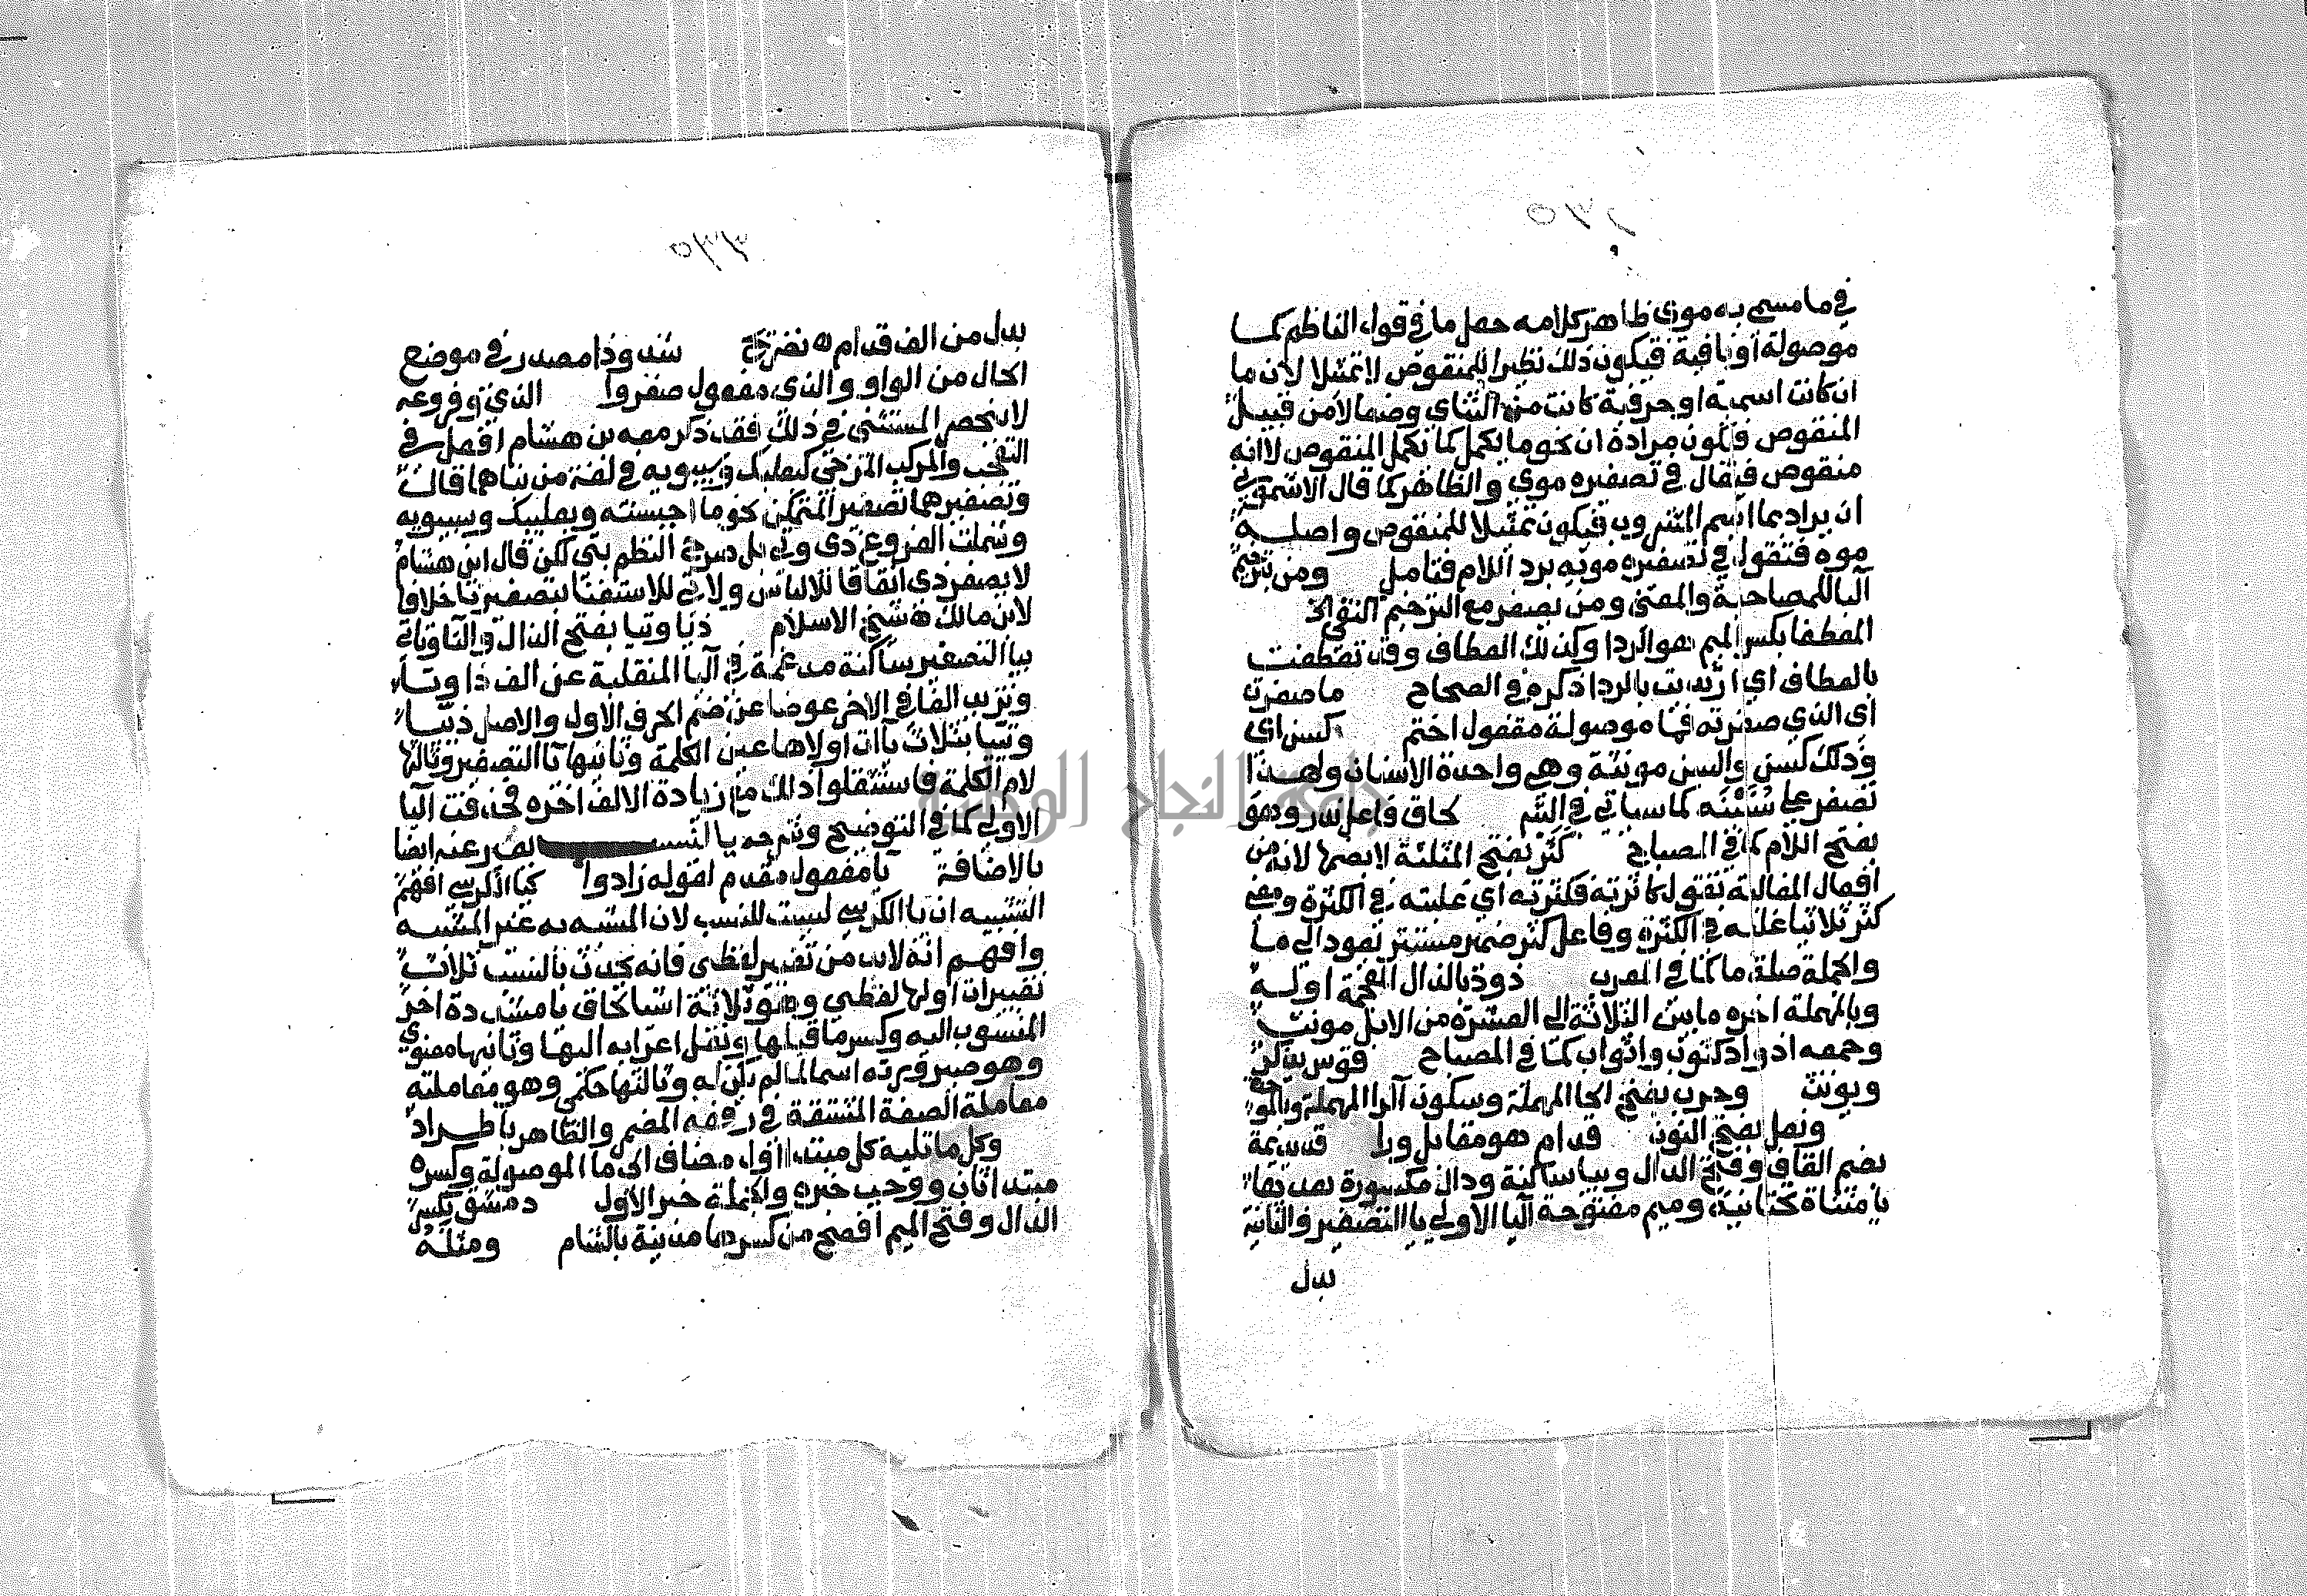 ٢٣٥
في ما مسمى به موي ظاهر كلامه جعل ما في قول الناظم كما
موصولة او نافية فيكون ذلك نظيرا للمنقوص لا تمثيلا لان ما
ان كانت اسمية او حرفية كانت من الثنائي وضعا لا من قبيل
المنقوص فيكون مراده ان نحو ما يكمل كما يكمل المنقوص لا انه
منقوص فيقال في تصغيره موي والظاهر كما قال الاشموني
ان يراد بما اسم المشروب فيكون تمثيلا للمنقوص واصله
موه فتقول في تصغيره مويه برد اللام فتامل ومن بترخيم
البا للمصاحبة والمعنى ومن يصغر مع الترخيم اكتفى الخ
المعطفا بكسر الميم هو الردا وكذلك العطاف وقد تعطفت
بالعطاف اي ارتديت بالردا ذكره في الصحاح ما صغرت
اي الذي صغرته فما موصولة مفعول اختم كسن اي
وذلك كسن والسن مونثة وهي واحدة الاسنان ولهذا
تصغر على سنينه كما سياتي في الشر لحاق فاعل ندر وهو
بفتح اللام كما في المصباح كثر بفتح المثلثة لا بضمها لانه من
افعال المغالبة تقول كاثرته فكثرته اي غلبته في الكثرة ومعنى
كثر ثلاثيا غلبه في الكثرة وفاعل كثر ضمير مستتر يعود الى ما
والجملة صلة ما كما في المعرب ذود بالذال المعجمة اوله
وبالمهملة اخره ما بين الثلاثة الى العشرة من الابل مونث
وجمعه اذواد كثوب واثواب كما في المصباح قوس يذكر
ويونث وحرب بفتح الحا المهملة وسكون الرا المهملة وبالموحدة
ونعل بفتح النون قدام هو مقابل ورا قديديمة
بضم القاف وفتح الدال وبيا ساكنة ودال مكسورة بعدها
يا مثناة تحتانية وميم مفتوحة اليا الاولى يا التصغير والثانية
بدل
٢٣٥
بدل من الف قدام ه تصريح شذوذا مصدر في موضع
الحال من الواو والذي مفعول صغروا الذي وفروعه
لا ينحصر المستثنى في ذلك فقد ذكر معه بن هشام افعل في
التعجب والمركب المزجي كبعلبك وسيبويه في لغة من بناهما قال
وتصغيرهما تصغير المتمكن نحو ما احيسنه وبعيلبك وسيبويه
وشملت الفروع ذي وتي بل صرح النظم بتي لكن قال ابن هشام
لا يصغر ذي اتفاقا للالباس ولا تي للاستغنا بتصغير تا خلافا
لابن مالك ه شيخ الاسلام ذيا وتيا بفتح الذال والتا وياتي
بيا التصغير ساكنة مدغمة في اليا المنقلبة عن الف ذا وتا
وتزيد الفا في الاخر عوضا عن ضم الحرف الاول والاصل ذييا
وتييا بثلاث يآات اولاها عين الكلمة وثانيها يا التصغير وثالثها
لام الكلمة فاستثقلوا ذلك مع زيادة الالف اخره فحذفت اليا
الاولى كما في التوضيح وشرحه يا النسب يعرف عنه ايضا
بالاضافة يا مفعول مقدم لقوله زادوا كيا الكرسي افهم
التشبيه ان يا الكرسي ليست للنسب لان المشبه به غير المشبه
وافهم انه لابد من تغيير لفظي فانه يحدث بالنسب ثلاث
تغييرات اولها لفظي وهو ثلاثة اشيا الحاق يا مشددة اخر
المنسوب اليه وكسر ما قبلها ونقل اعرابه اليها وثانيها معنوي
وهو صيرورته اسما لما لم يكن له وثالثها حكمي وهو معاملته
معاملة الصفة المشتقة في رفعه المضمر والظاهر باطراد
وكل ما تليه كل مبتدا اول مضاف الى ما الموصولة وكسره
مبتدا ثان ووجب خبره والجملة خبر الاول دمشق بكسر
الدال وفتح الميم افصح من كسرها مدينة بالشام ومثله
جامعة النجاح الوطنية